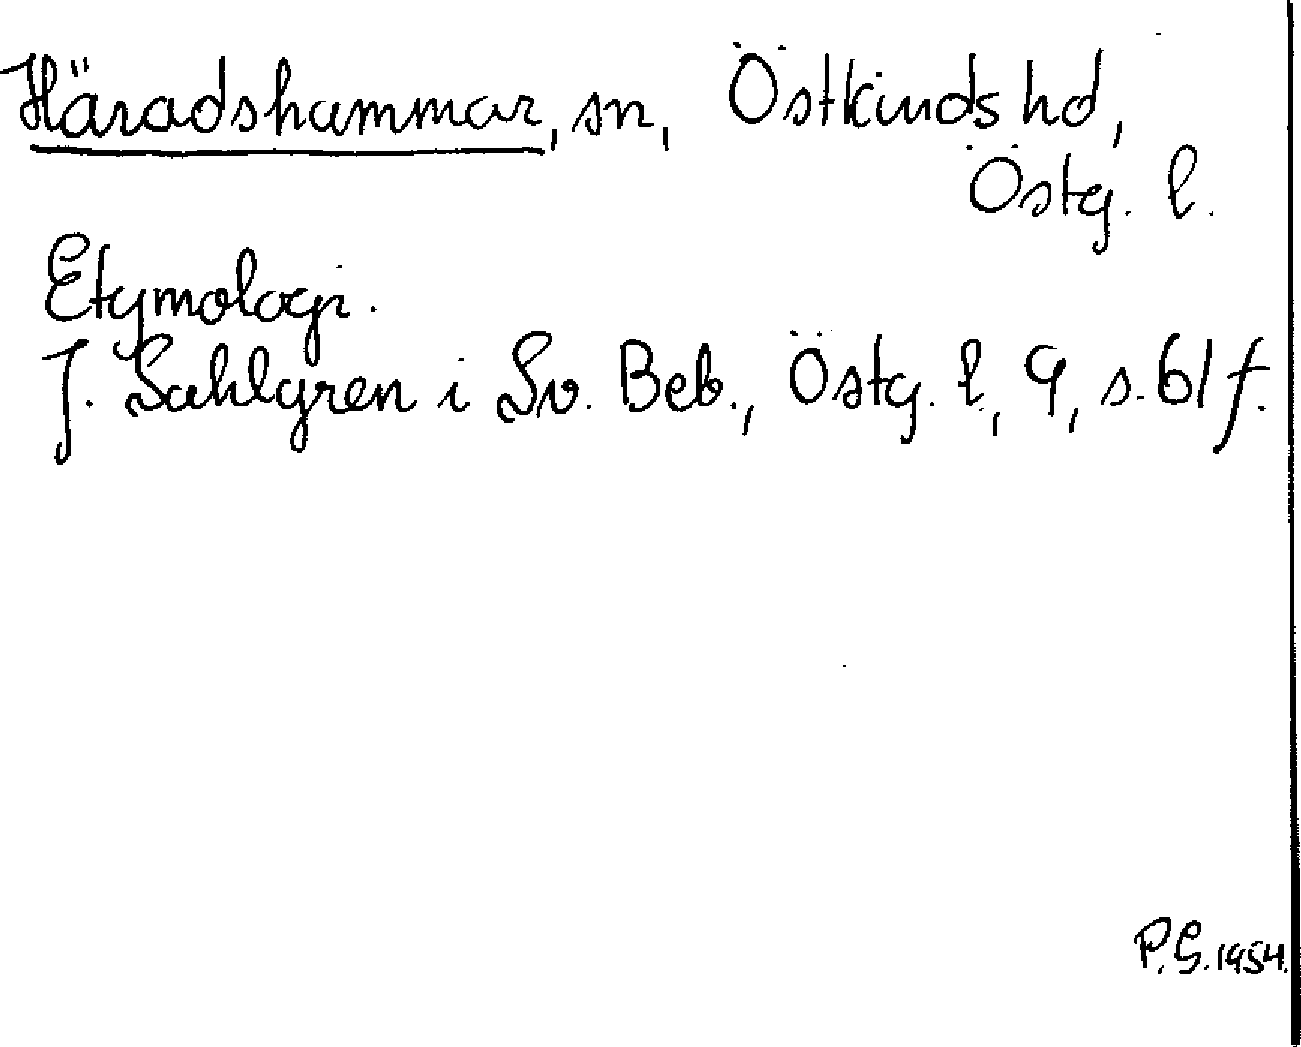 Häradshammar, sn, Östkinds hd,
Östg. l.
Etymologi.
J. Sahlgren i Sv. Beb., Östg. l, 9, s. 61 f.
P.G. 1954.